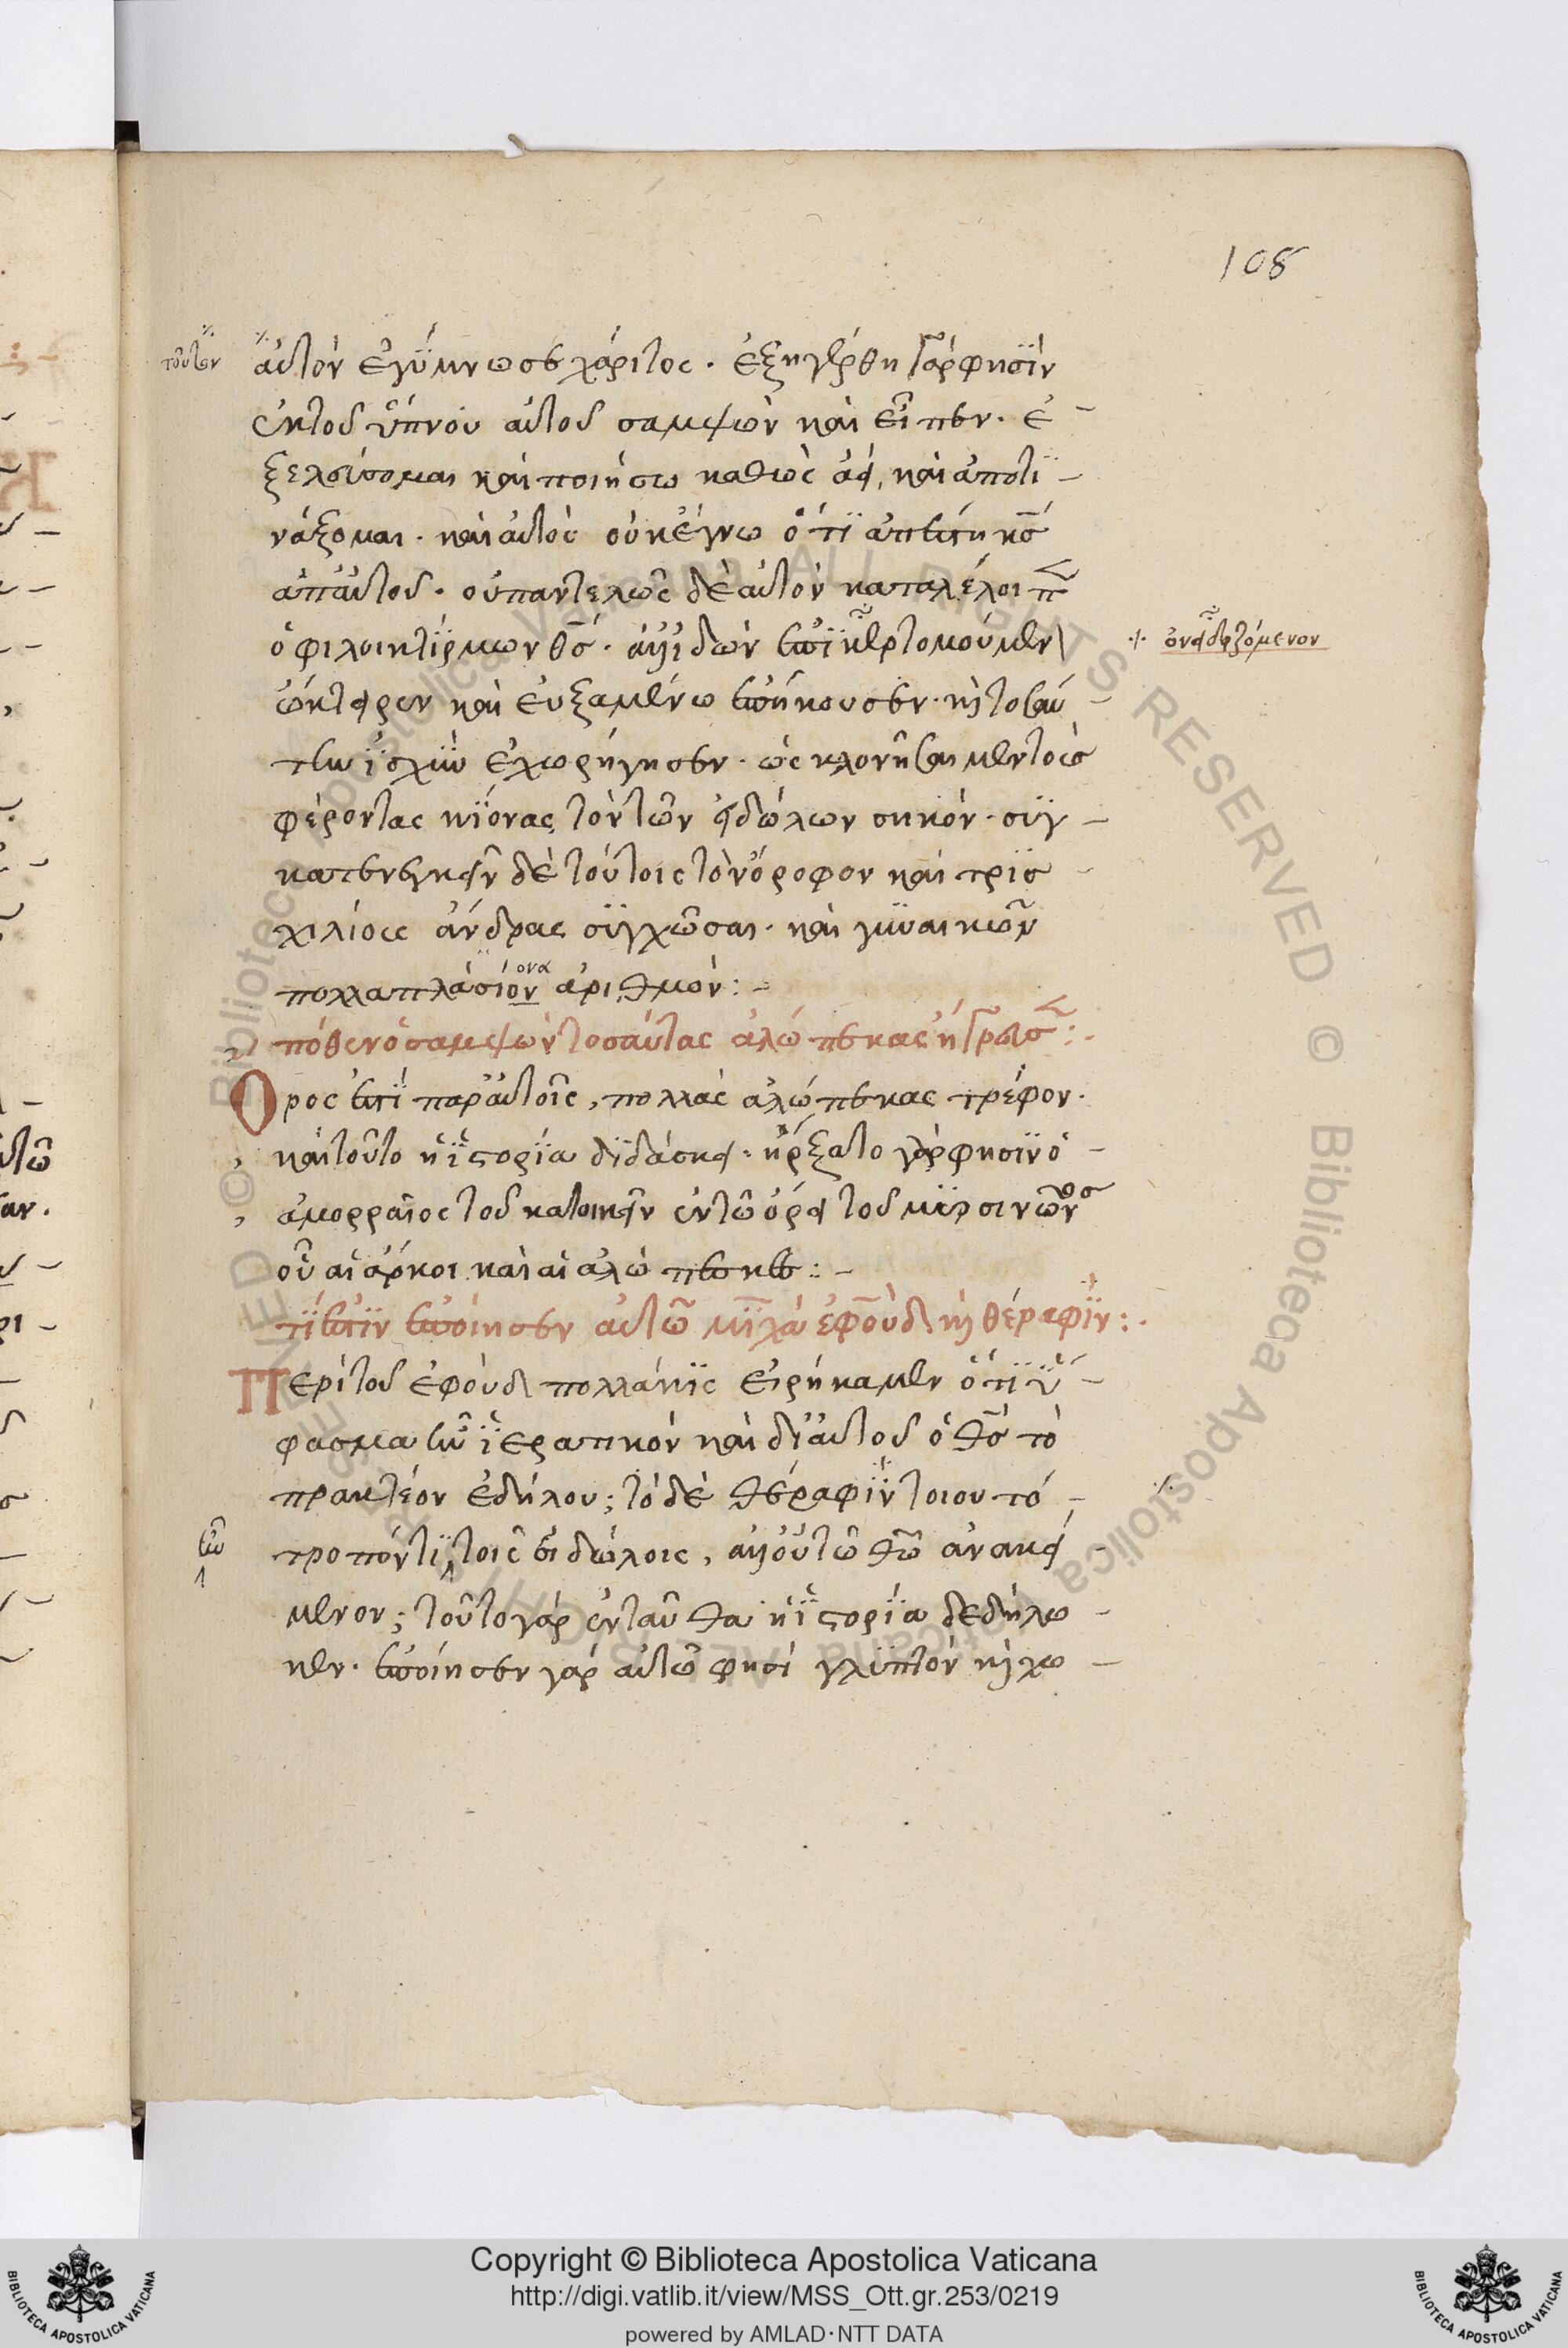 108
τοῦτον
αὐτὸν ἐγύμνωσε χάριτος· ἐξηγέρθη γάρ φησϊν
ἐκ τοῦ ὕπνου αὐτοῦ σαμψὼν καὶ εἶπεν· ἐ-
ξελεύσομαι καὶ ποιήσω καθὼς ἀεί, καὶ ἀποτι-
νάξομαι· καὶ αὐτὸς οὐκ ἔγνω ὅτι ἀπέστη κς
ἀπ' αὐτοῦ· οὐ παντελῶς δὲ αὐτὸν καταλέλοιπ
ὁ φιλοικτίρμων θς· ἀλλ' ἰδὼν ἐπικερτομούμεν
ὀνειδιζόμενον
ὤκτειρεν καὶ εὐξαμένω ἐπήκουσεν· κ πο
τὴν ἰσχὺν ἐχωρήγησεν· ὡς κλονῆσαι μὲν τοὺς
φέροντας κίονας τὸν τῶν εἰδώλων σηκόν· συγ-
κατενεγκεῖν δὲ τούτοις τὸν ὄροφον καὶ τρισ-
χιλίους ἄνδρας συγχῶσαι· καὶ γυναικῶν
πολλαπλάσιον ονα ἀριθμόν:-
πόθεν ὁ σαμψὼν τοσαύτας ἀλώπεκας ἤγρευσ:·
Ὄρος ἐστὶ παρ' αὐτοῖς, πολλὰς ἀλώπεκας τρέφον·
καὶ τοῦτο ἡ ἱστορία διδάσκει· ἤρξατο γάρ φησιν ὁ-
ἀμορραῖος τοῦ κατοικεῖν ἐν τῶ ὄρει τοῦ μυρσινῶνος
οὗ αἱ ἄρκοι καὶ αἱ ἀλώπεκες:-
τί ἐστιν ἐποίησεν αὐτῶ μιχὰ ἐφοὺδ κ θέραφιν:·
Περὶ τοῦ ἐφοὺδ πολλάκις εἰρήκαμεν ὅτι ὕ-
φασμα ἦν ἱερατικὸν καὶ δι' αὐτοῦ ὁ θς τὸ
πρακτέον ἐδήλου; τὸ δὲ θέραφιν τοιουτό-
ἦν
τροπόν τι τοῖς εἰδώλοις, ἀλλ' οὐ τῶ θῶ ἀνακεί-
μενον; τοῦτο γὰρ ἐνταῦθα ἡ ἱστορία δεδήλω-
κεν· ἐποίησεν γὰρ αὐτῶ φησὶ γλυπτὸν κ χω-
Copyright © Biblioteca Apostolica Vaticana
http://digi.vatlib.it/view/MSS_Ott.gr.253/0219
powered by AMLAD·NTT DATA